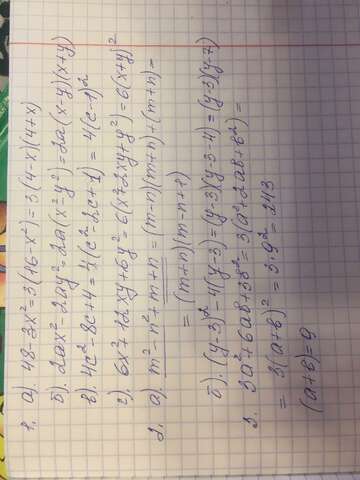 1. а). 48-3x²=3(16-x²)=3(4-x)(4+x)
б). 2ax²-2ay²=2a(x²-y²)=2a(x-y)(x+y)
в). 4c²-8c+4=4(c²-2c+1)=4(c-1)²
г). 6x²+12xy+6y²=6(x²+2xy+y²)=6(x+y)²
2. а). m²-n²+m+n=(m-n)(m+n)+(m+n)=
=(m+n)(m-n+1)
б). (y-3)²-4(y-3)=(y-3)(y-3-4)=(y-3)(y-7)
3. 3a²+6ab+3b²=3(a²+2ab+b²)=
= 3(a+b)²=3·9²=243
(a+b)=9